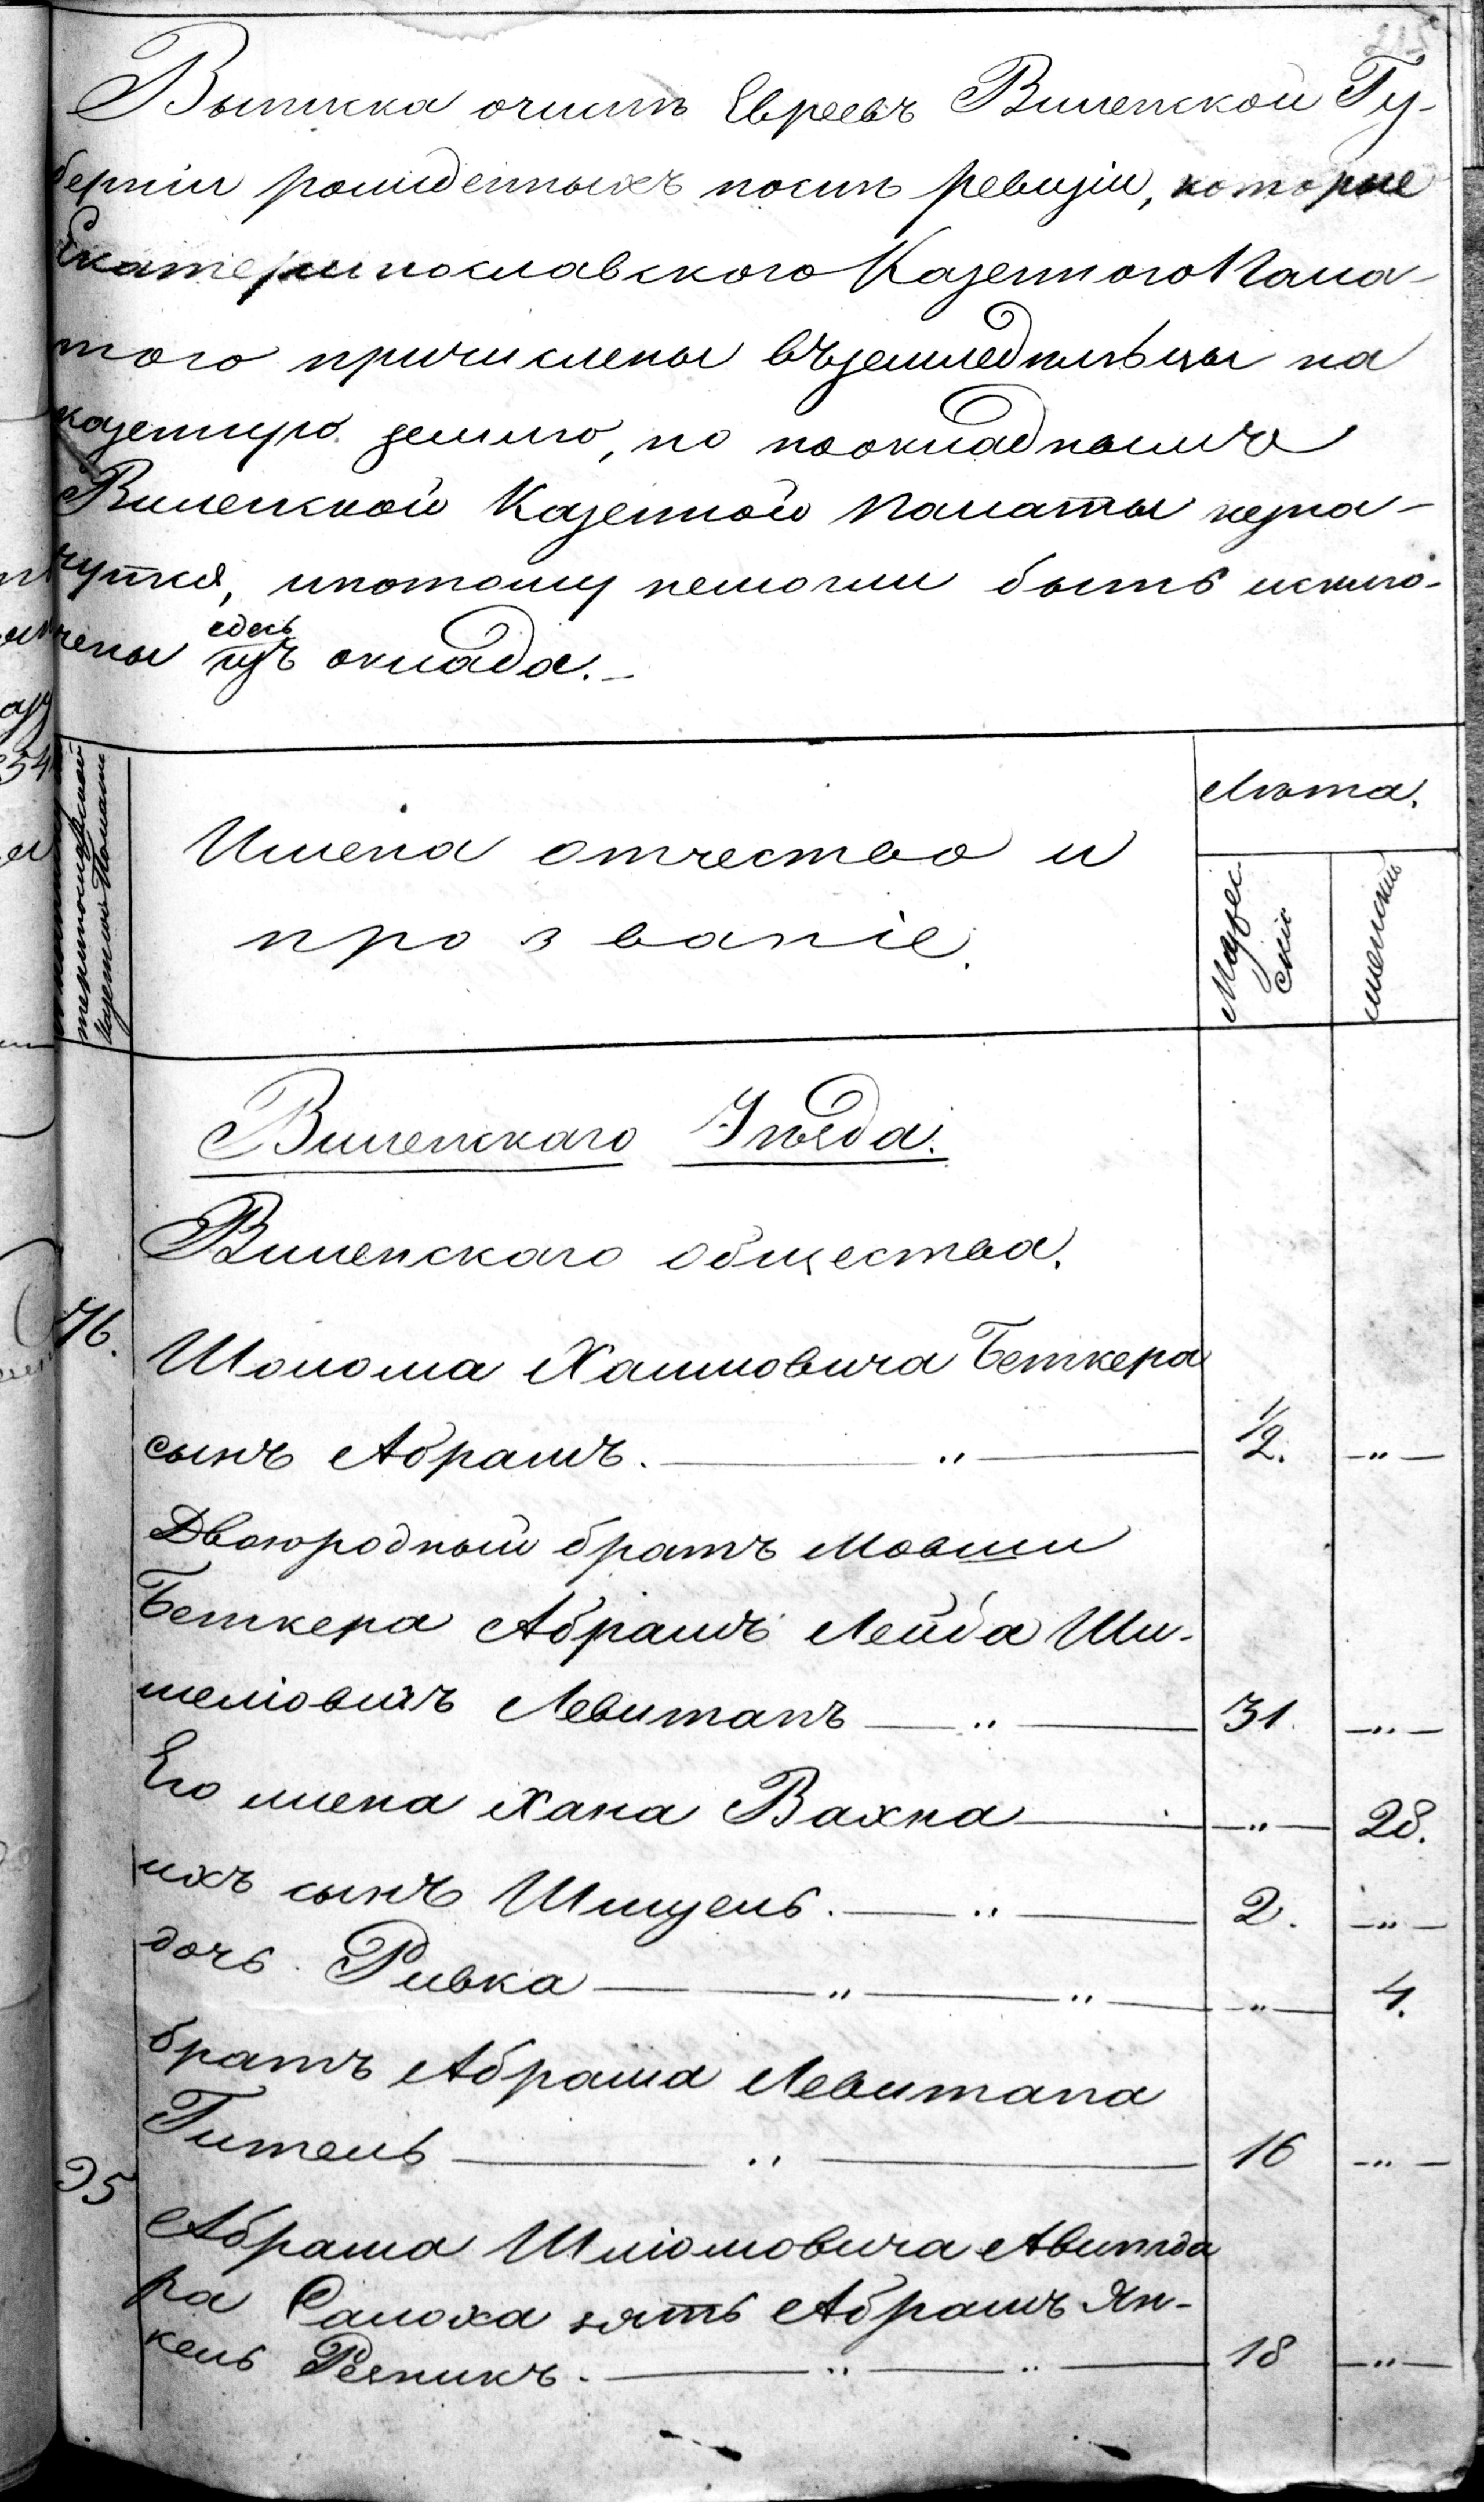 215
Выписка очисть Евреевъ Виленской Гу-
берніи рожиденныхъ посить ревизіи, которые
Екатеринославского Казенного Пала-
того причислены въземледѣльцы на
казенную землю, но поокладнымъ
Виленской Казенной Палаты незна-
чутся, ипотому немогли быть исклю-
едесь
чены изъ оклада.
теринославской
Казенной Палаты
Имена отчество и
прозваніе.
Лѣта.
Мужес
скій
женскій
Виленскаго Уѣзда.
Виленскаго общества.
76.
Шолома Хаимовича Беткера
сынъ Абрамъ. — " — 1/2. — " —
Двоюродный братъ Мовши
Беткера Абрамъ Лейба Ши-
меліовичъ Левитанъ — " — 31. — " —
Его жена Хана Вахна — " — 28.
ихъ сынъ Шмуель. — " — 2. — " —
дочь Ривка — " — " — " — 4.
братъ Абрама Левитана
Гитель — " — 16 — " —
95
Абрама Шліомовича Авигда
ра Салоха зять Абрамъ Ян-
кель Резникъ. — " — " — 18 — " —